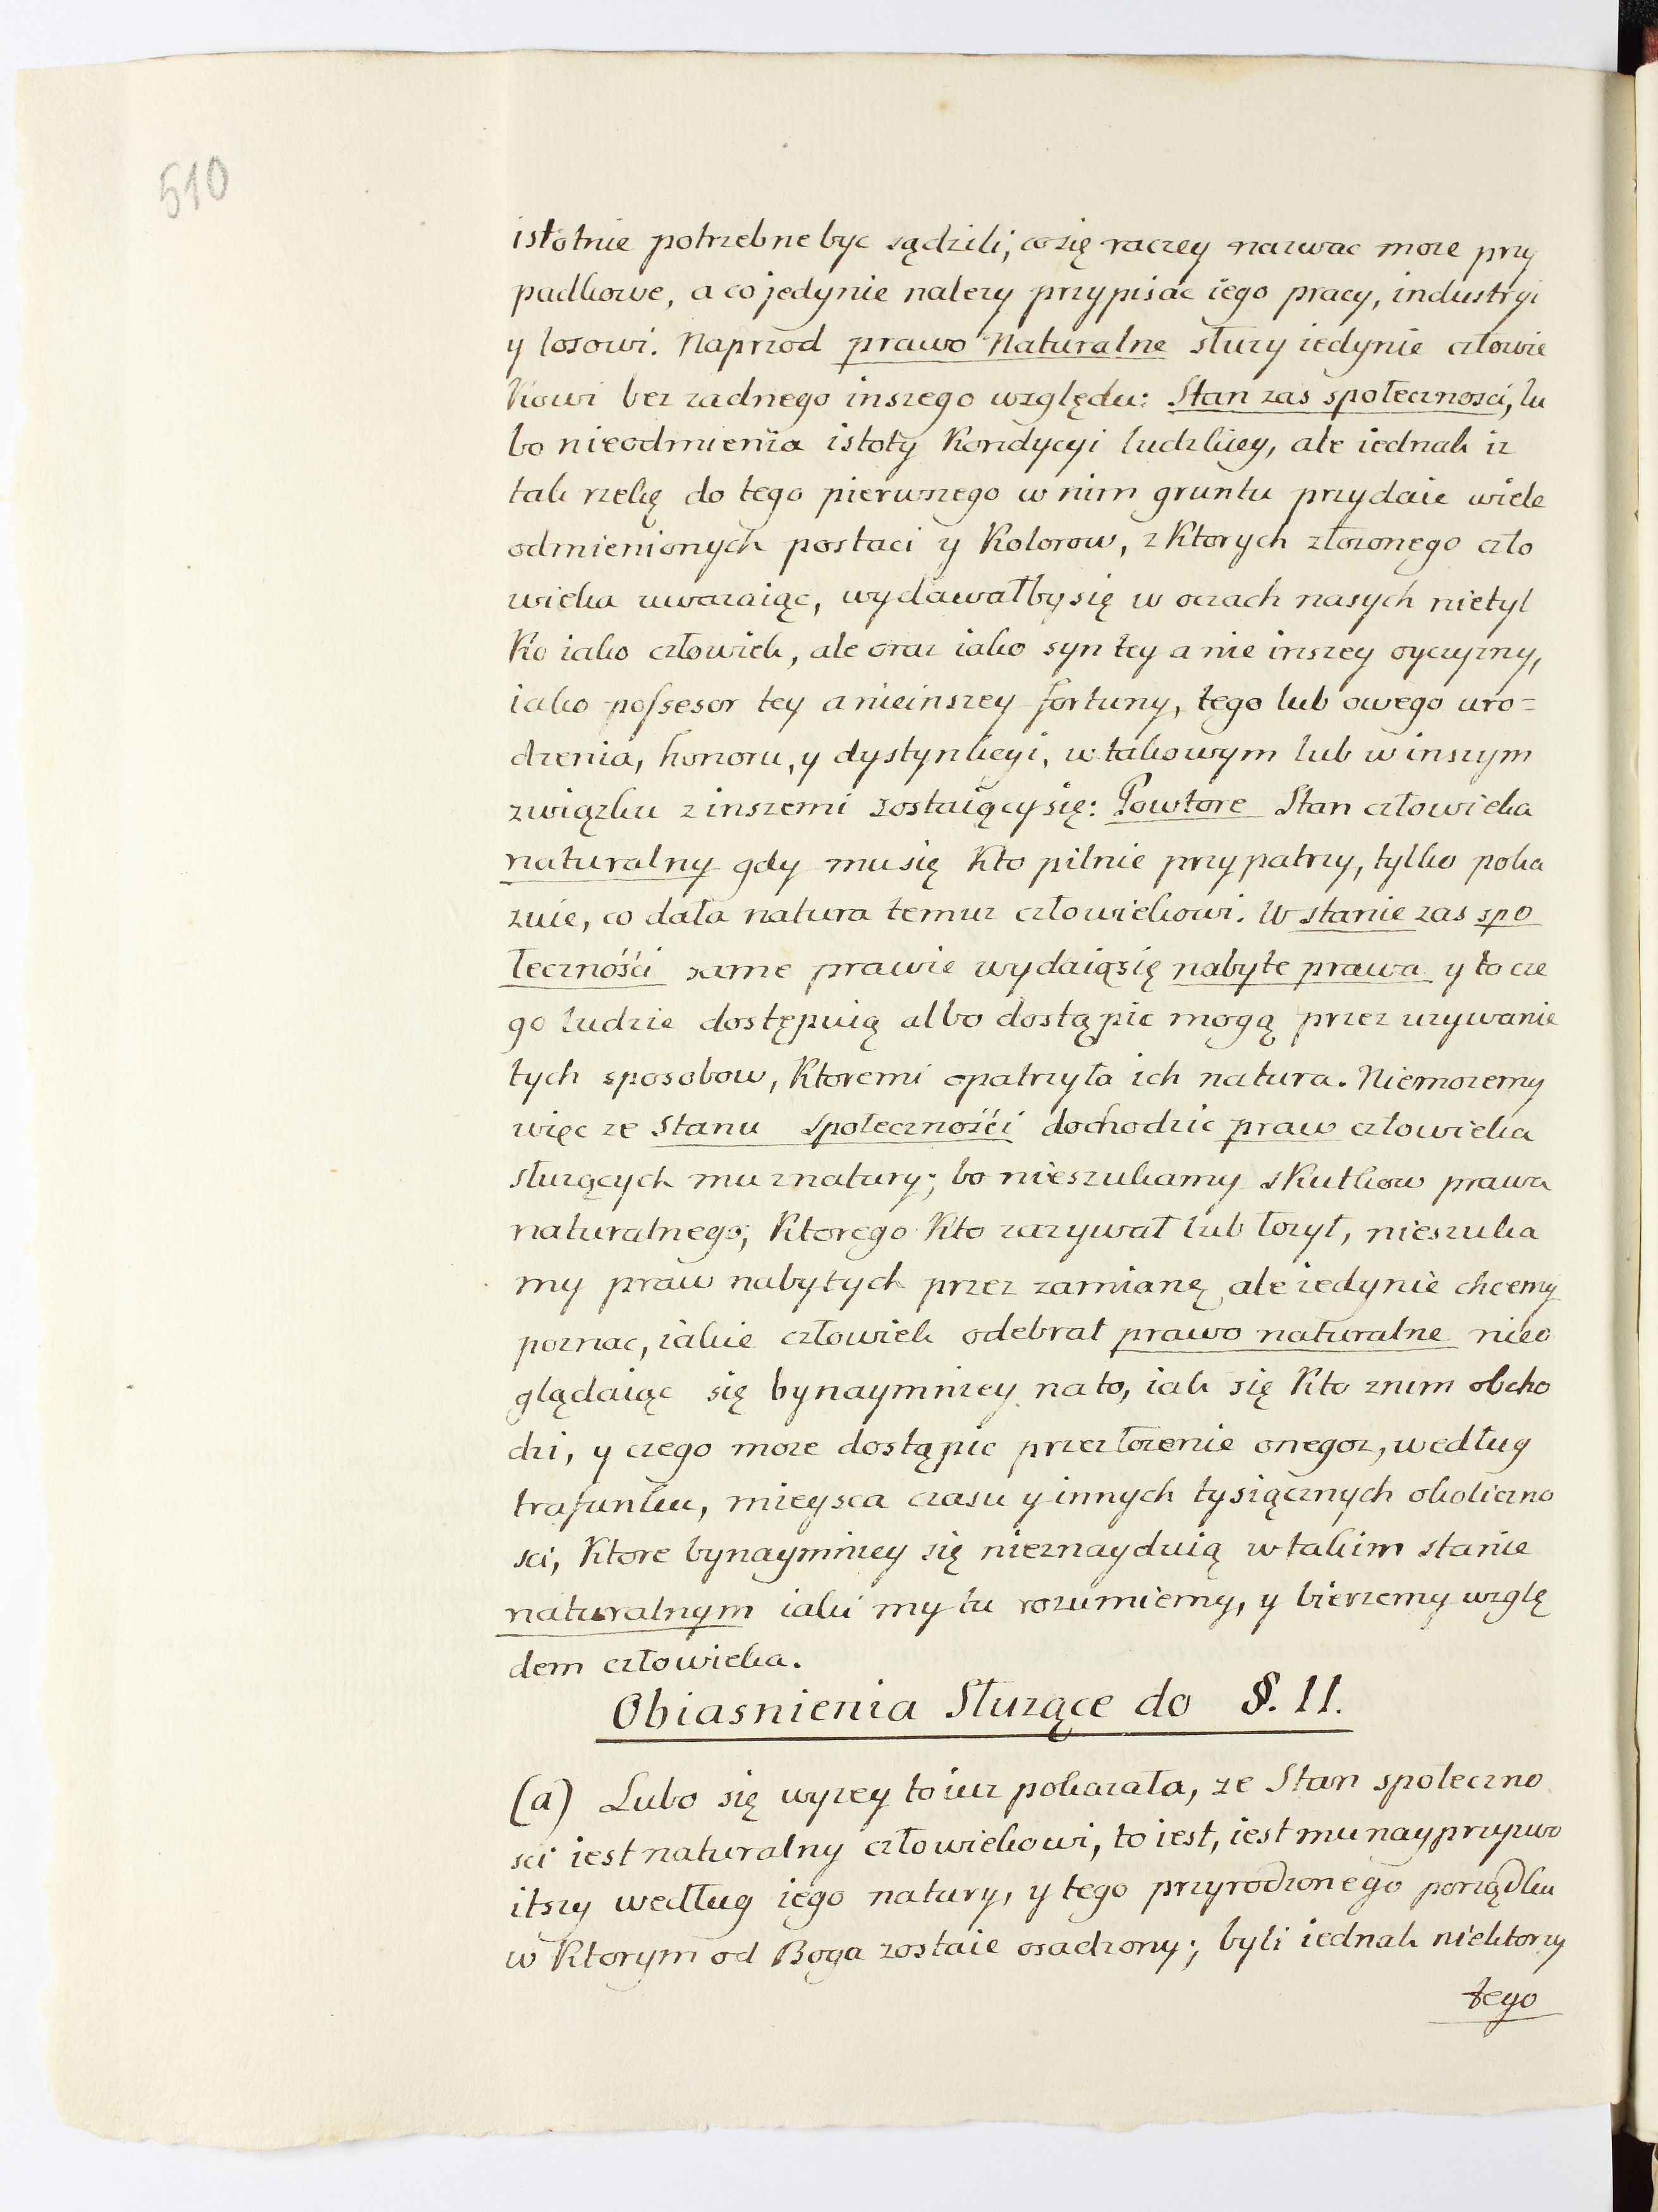 510
istotnie potrzebne byc sądzili, co się raczey nazwac moze przy
padkowe, a co jedynie nalezy przypisac iego pracy, industryi
y losowi. Naprzod prawo Naturalne słuzy iedynie człowie
kowi bez zadnego inszego względu: Stan zas społecznosci, lu
bo nieodmienia istoty Kondycyi ludzkiey, ale iednak iz
tak rzekę do tego pierwszego w nim gruntu przydaie wiele
odmienionych postaci y Kolorow, z Ktorych złozonego czło
wieka uwazaiąc, wydawałby się w oczach nasych nietyl
ko iako człowiek, ale oraz iako syn tey a nie inszey oyczyzny,
iako possesor tey a nieinszey fortuny, tego lub owego uro=
dzenia, honoru, y dystynkcyi, w takowym lub w inszym
związku z inszemi zostaiący się: Powtore Stan człowieka
naturalny gdy mu się Kto pilnie przypatrzy, tylko poka
zuie, co dała natura temuz człowiekowi. W stanie zas spo
łecznośći same prawie wydaią się nabyte prawa y to cze
go ludzie dostępuią albo dostąpic mogą przez uzywanie
tych sposobow, Ktoremi opatrzyła ich natura. Niemozemy
więc ze stanu społecznośći dochodzic praw człowieka
słuzących mu z natury; bo nieszukamy skutkow prawa
naturalnego; Ktorego Kto zazywał lub łozył, nieszuka
my praw nabytych przez zamianę ale iedynie chcemy
poznac, iakie człowiek odebrał prawo naturalne nieo
glądaiąc się bynaymniey na to, iak się Kto z nim obcho
dzi, y czego moze dostąpic przez łozenie onegoz, według
trafunku, mieysca czasu y innych tysiącznych okoliczno
sci, Ktore bynaymniey się nieznayduią w takim stanie
naturalnym iaki my tu rozumiemy, y bierzemy wzglę
dem człowieka.
Obiasnienia Słuzące do §. II.
(a) Lubo się wyzey to iuz pokazała, ze Stan społeczno
sci iest naturalny człowiekowi, to iest, iest mu nayprzyzwo
itszy według iego natury, y tego przyrodzonego porządku
w Ktorym od Boga zostaie osadzony; byli iednak niektorzy
tego